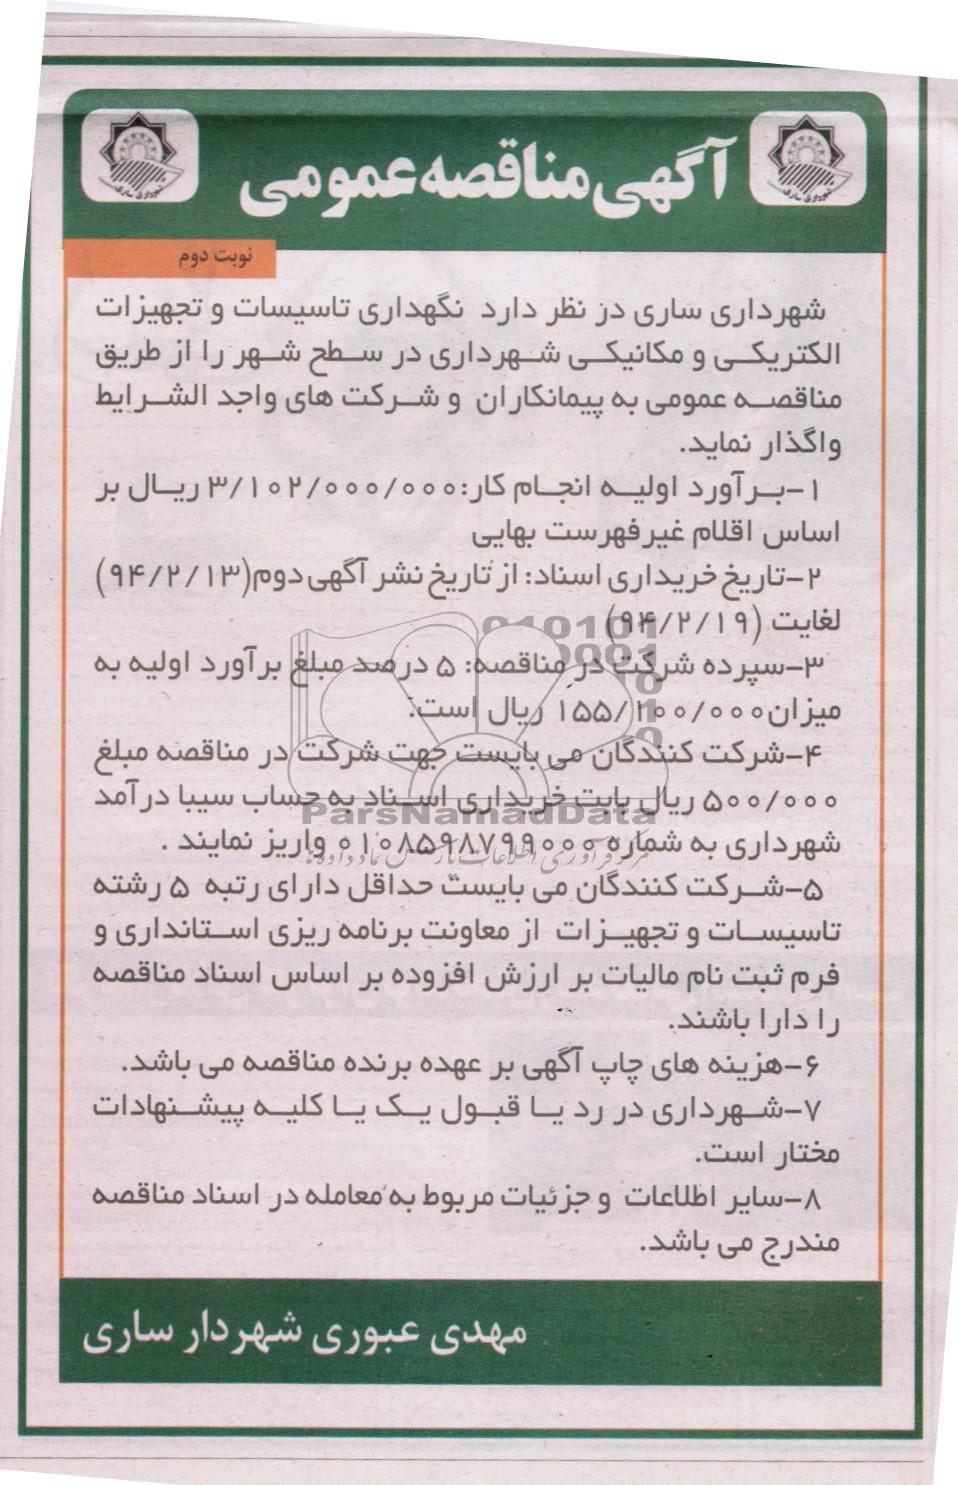 آگهی مناقصه عمومی
شهرداری ساری
شهرداری ساری
نوبت دوم
شهرداری ساری در نظر دارد نگهداری تاسیسات و تجهیزات
الکتریکی و مکانیکی شهرداری در سطح شهر را از طریق
مناقصه عمومی به پیمانکاران و شرکت های واجد الشرایط
واگذار نماید.
۱-برآورد اولیه انجام کار:۳/۱۰۲/۰۰۰/۰۰۰ ریال بر
اساس اقلام غیرفهرست بهایی
۲-تاریخ خریداری اسناد: از تاریخ نشر آگهی دوم(۹۴/۲/۱۳)
لغایت (۹۴/۲/۱۹)
۳-سپرده شرکت در مناقصه: ۵ درصد مبلغ برآورد اولیه به
میزان۱۵۵/۱۰۰/۰۰۰ ریال است.
۴-شرکت کنندگان می بایست جهت شرکت در مناقصه مبلغ
۵۰۰/۰۰۰ ریال بابت خریداری اسناد به حساب سیبا درآمد
ParsNamadData
شهرداری به شماره ۰۱۰۸۵۹۸۷۹۹۰۰۰ واریز نمایند .
۵-شرکت کنندگان می بایست حداقل دارای رتبه ۵ رشته
تاسیسات و تجهیزات از معاونت برنامه ریزی استانداری و
فرم ثبت نام مالیات بر ارزش افزوده بر اساس اسناد مناقصه
را دارا باشند.
۶-هزینه های چاپ آگهی بر عهده برنده مناقصه می باشد.
۷-شهرداری در رد یا قبول یک یا کلیه پیشنهادات
مختار است.
۸-سایر اطلاعات و جزئیات مربوط به معامله در اسناد مناقصه
مندرج می باشد.
مهدی عبوری شهردار ساری